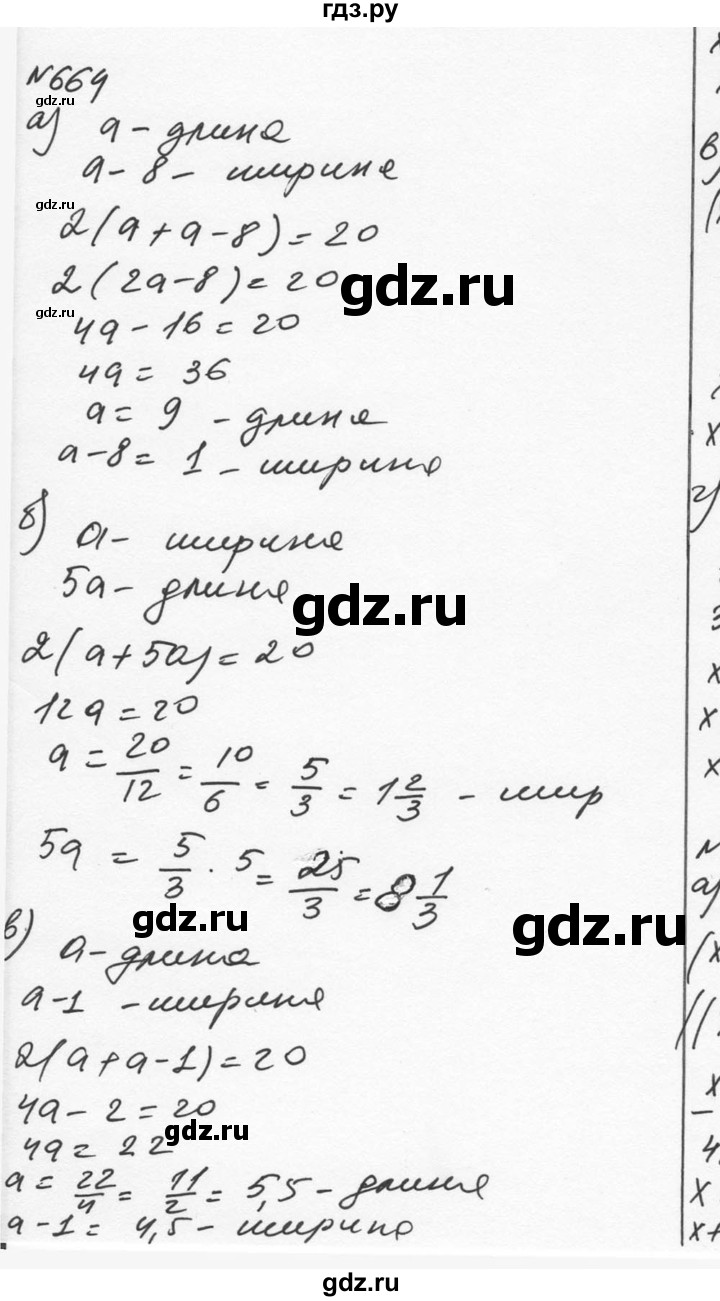 гдз.ру
№664
gdz.ru
а) а - длина
а - 8 - ширина
gdz.ru
2(а + а - 8) = 20
2(2а - 8) = 20
gdz.ru
gdz.ru
4а - 16 = 20
4а = 36
а = 9 - длина
а - 8 = 1 - ширина
gdz.ru
б) а - ширина
5а - длина
gdz.ru
2(а + 5а) = 20
12а = 20
а = 20/12 = 10/6 = 5/3 = 1 2/3 - шир
5а = 5/3 · 5 = 25/3 = 8 1/3
gdz.ru
gdz.ru
в) а - длина
а - 1 - ширина
2(а + а - 1) = 20
4а - 2 = 20
gdz.ru
4а = 22
а = 22/4 = 11/2 = 5,5 - длина
а - 1 = 4,5 - ширина
gdz.ru